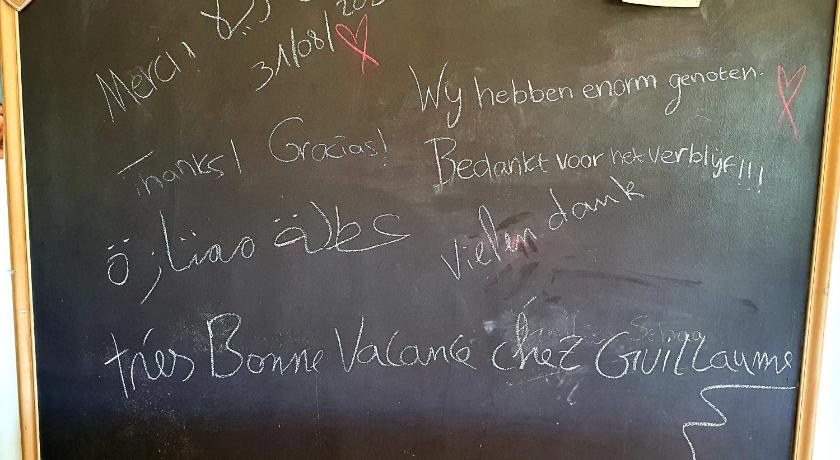 Merci!
31/08/
Wy hebben enorm genoten.
Thanks! Gracias!
Bedankt voor het verblijf!!!
عطلة ممتازة
Vielen dank
tries Bonne Vacance chez GUILLaume